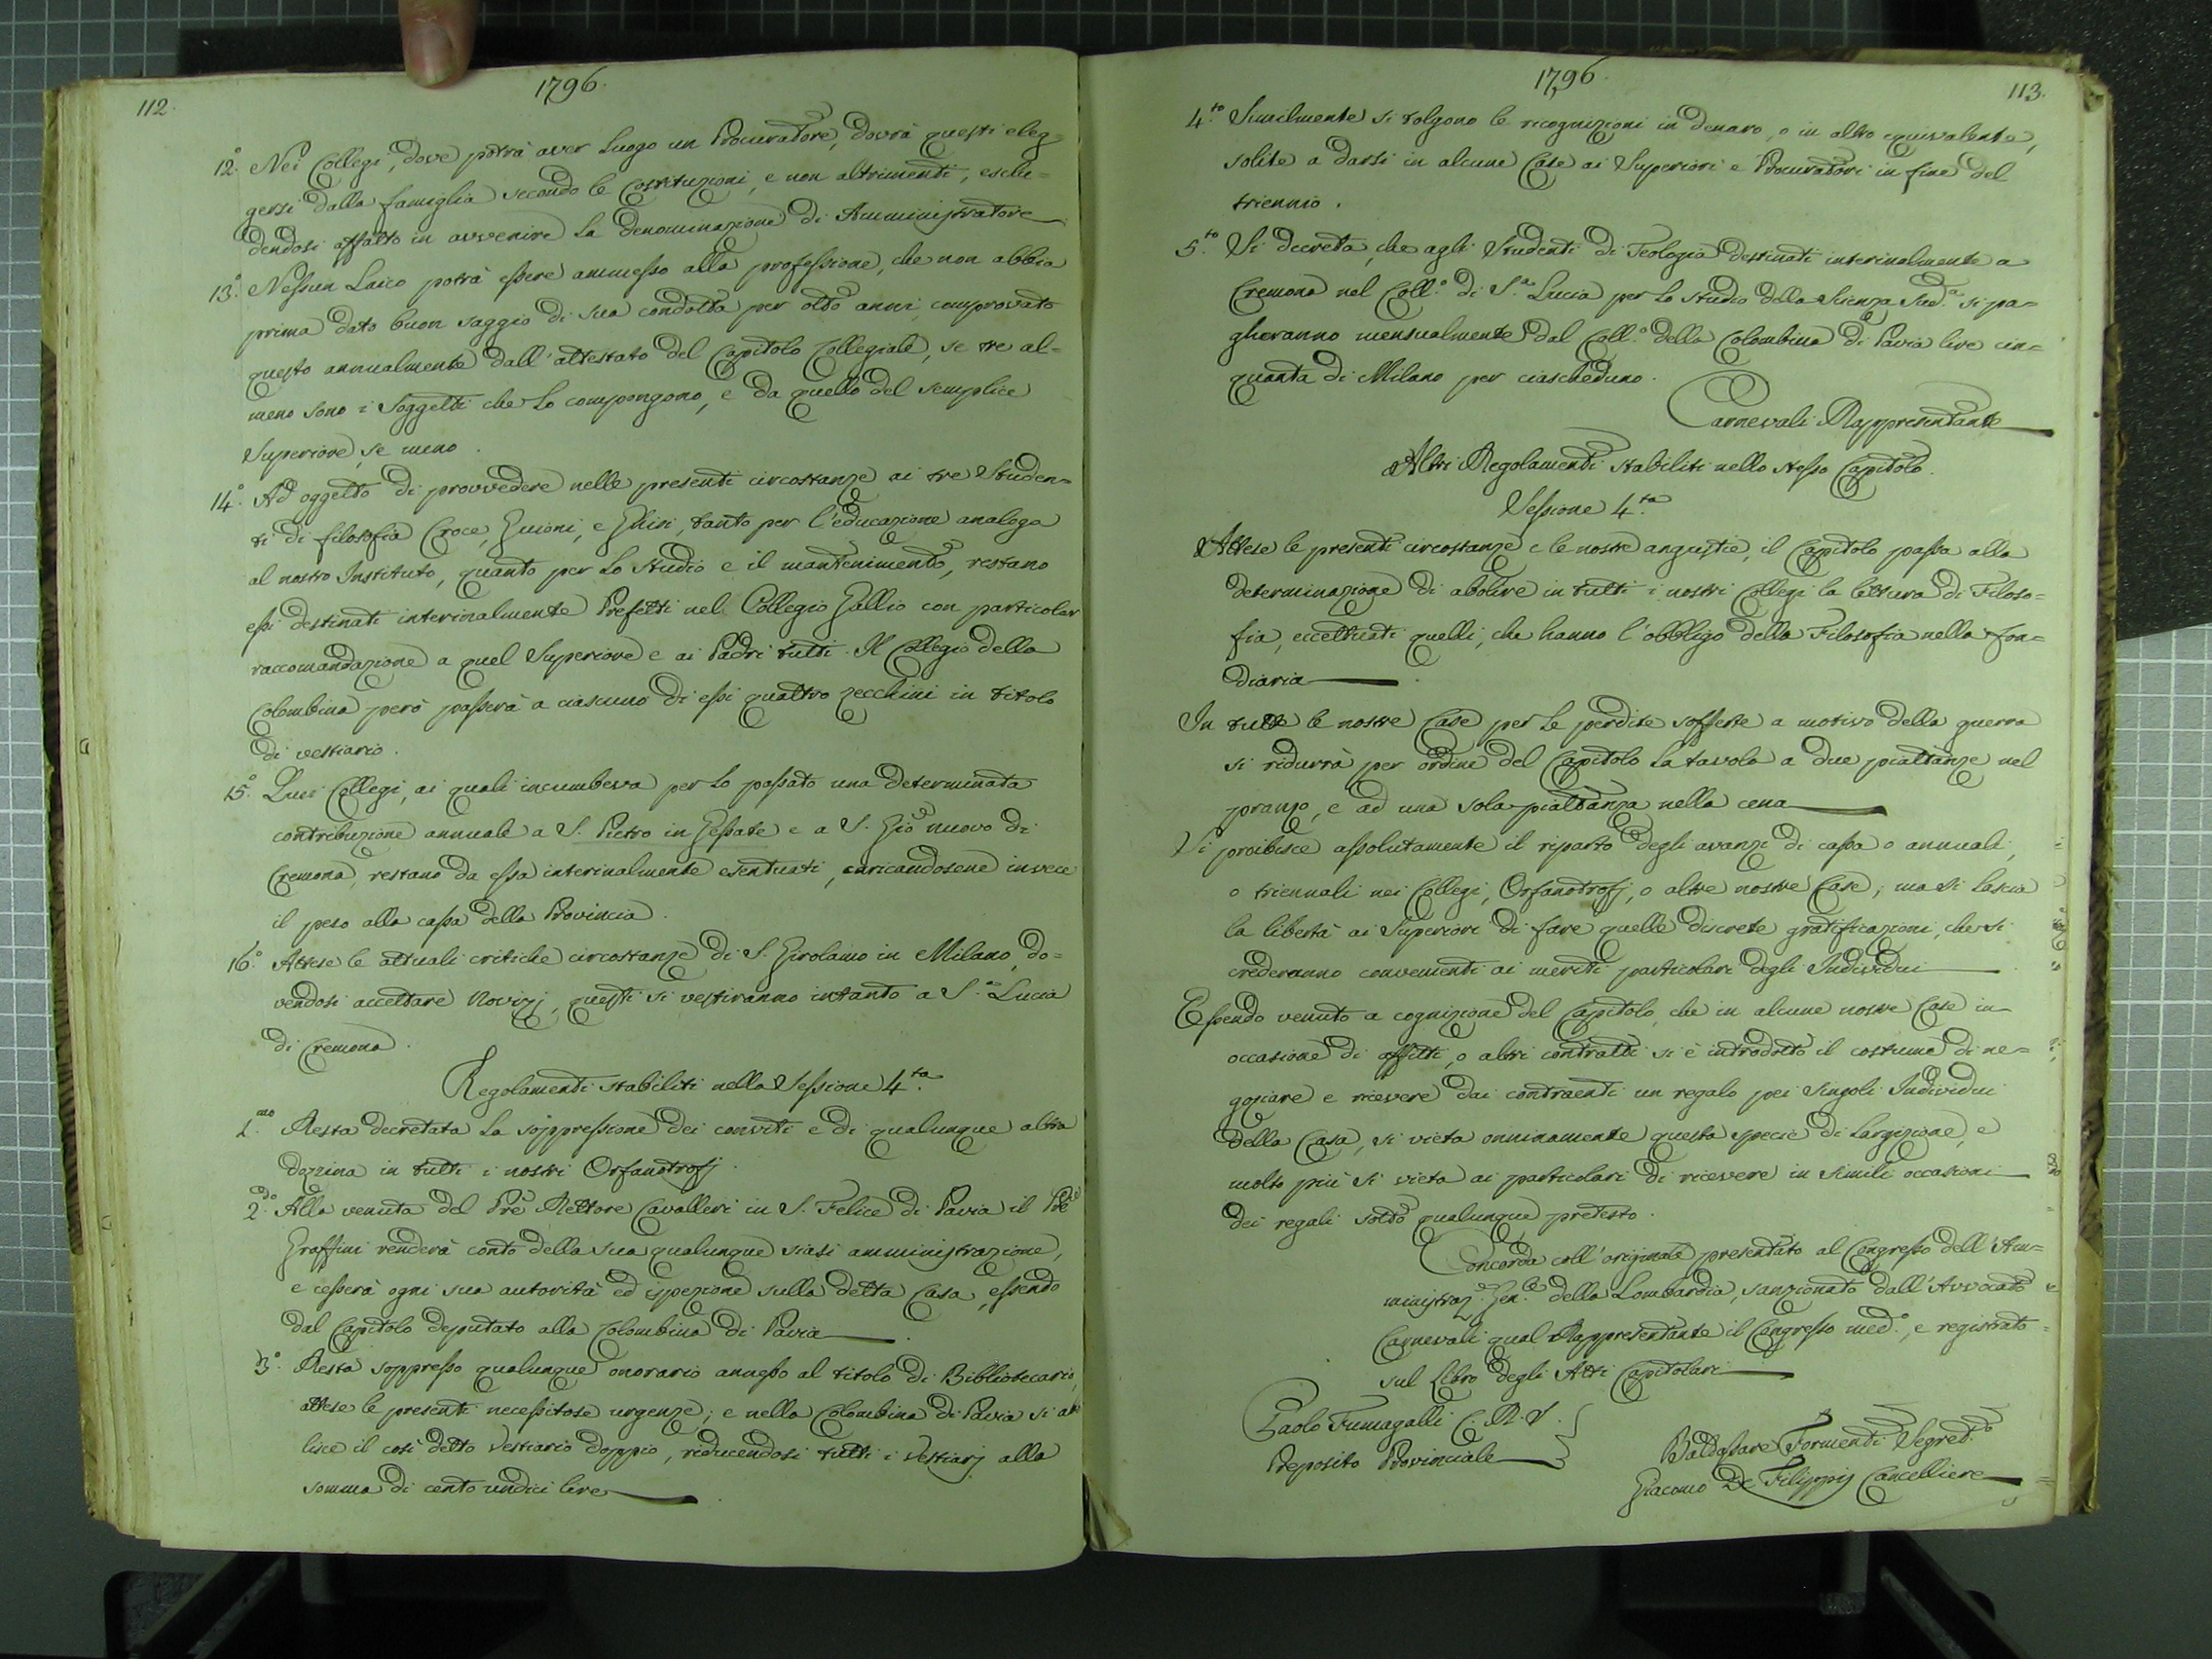 112.
1796.
12.° Nei Collegi, dove potrà aver luogo un Procuratore, dovrà questi eleg=
gersi dalla famiglia secondo le Costituzioni, e non altrimenti, esclu=
dendosi affatto in avvenire la denominazione di Amministratore
13.° Nessun Laico potrà essere ammesso alla professione, che non abbia
prima dato buon saggio di sua condotta per otto anni, comprovato
questo annualmente dall'attestato del Capitolo Collegiale, se tre al=
meno sono i Soggetti che lo compongono, e da quello del semplice
Superiore, se meno.
14.° Ad oggetto di provvedere nelle presenti circostanze ai tre Studen=
ti di filosofia Croce, Guioni, e Ghisi, tanto per l'educazione analoga
al nostro Instituto, quanto per lo Studio e il mantenimento, restano
essi destinati interinalmente Prefetti nel Collegio Gallio con particolar
raccomandazione a quel Superiore e ai Padri tutti. Il Collegio della
Colombina però passerà a ciascuno di essi quattro zecchini in titolo
di vestiario.
15.° Quei Collegi, ai quali incumbeva per lo passato una determinata
contribuzione annuale a S. Pietro in Gessate e a S. Gio nuovo di
Cremona, restano da essa interinalmente esentuati, caricandosene invece
il peso alla cassa della Provincia.
16.° Attese le attuali critiche circostanze di S. Girolamo in Milano, do=
vendosi accettare Novizj, questi si vestiranno intanto a S.a Lucia
di Cremona.
Regolamenti stabiliti nella Sessione 4.ta
1.mo Resta decretata la soppressione dei conviti e di qualunque altra
dozzina in tutti i nostri Orfanotrofj.
2.do Alla venuta del Pre Rettore Cavalleri in S. Felice di Pavia il Pre
Graffini renderà conto della sua qualunque siasi amministrazione,
e cesserà ogni sua autorità ed ispezione sulla detta Casa, essendo
dal Capitolo deputato alla Colombina di Pavia
3.° Resta soppresso qualunque onorario annesso al titolo di Bibliotecario,
attese le presenti necessitose urgenze; e nella Colombina di Pavia si abo
lisce il così detto Vestiario doppio, riducendosi tutti i Vestiarj alla
somma di cento undici lire
1796.
113.
4.to Similmente si tolgono le ricognizioni in denaro, o in altro equivalente,
solite a darsi in alcune Case ai Superiori e Procuratori in fine del
triennio.
5.to Si decreta, che agli Studenti di Teologia destinati interinalmente a
Cremona nel Coll.° di S.a Lucia per lo studio della Scienza Sud.a si pa=
gheranno mensualmente dal Coll.° della Colombina di Pavia lire cin=
quanta di Milano per ciascheduno.
Carnevali Rappresentante
Altri Regolamenti stabiliti nello stesso Capitolo.
Sessione 4.ta
Attese le presenti circostanze e le nostre angustie, il Capitolo passa alla
determinazione di abolire in tutti i nostri Collegi la lettura di Filoso=
fia, eccettuati quelli, che hanno l'obbligo della Filosofia nella fon=
diaria
In tutte le nostre Case per le perdite sofferte a motivo della guerra
si ridurrà per ordine del Capitolo la tavola a due piattanze nel
pranzo, e ad una sola piattanza nella cena
Si proibisce assolutamente il riparto degli avanzi di cassa o annuali,
o triennali nei Collegi, Orfanotrofj, o altre nostre Case; ma si lascia
la libertà ai Superiori di fare quelle discrete gratificazioni, che si
crederanno convenienti ai meriti particolari degli Individui
Essendo venuto a cognizione del Capitolo, che in alcune nostre Case in
occasione di affitti, o altri contratti si è introdotto il costume di ne=
goziare e ricevere dai contraenti un regalo pei singoli Individui
della Casa, si vieta onninamente questa specie di largizione, e
molto più si vieta ai particolari di ricevere in simili occasioni
dei regali sotto qualunque pretesto.
Concorda coll'originale presentato al Congresso dell'Am=
ministraz.e Gen.le della Lombardia, sanzionato dall'Avvocato
Carnevali qual Rappresentante il Congresso med.°, e registrato
sul Libro degli Atti Capitolari
Paolo Fumagalli C. R. S.
Preposito Provinciale
Baldassare Formenti Segret.°
Giacomo De Filippis Cancelliere